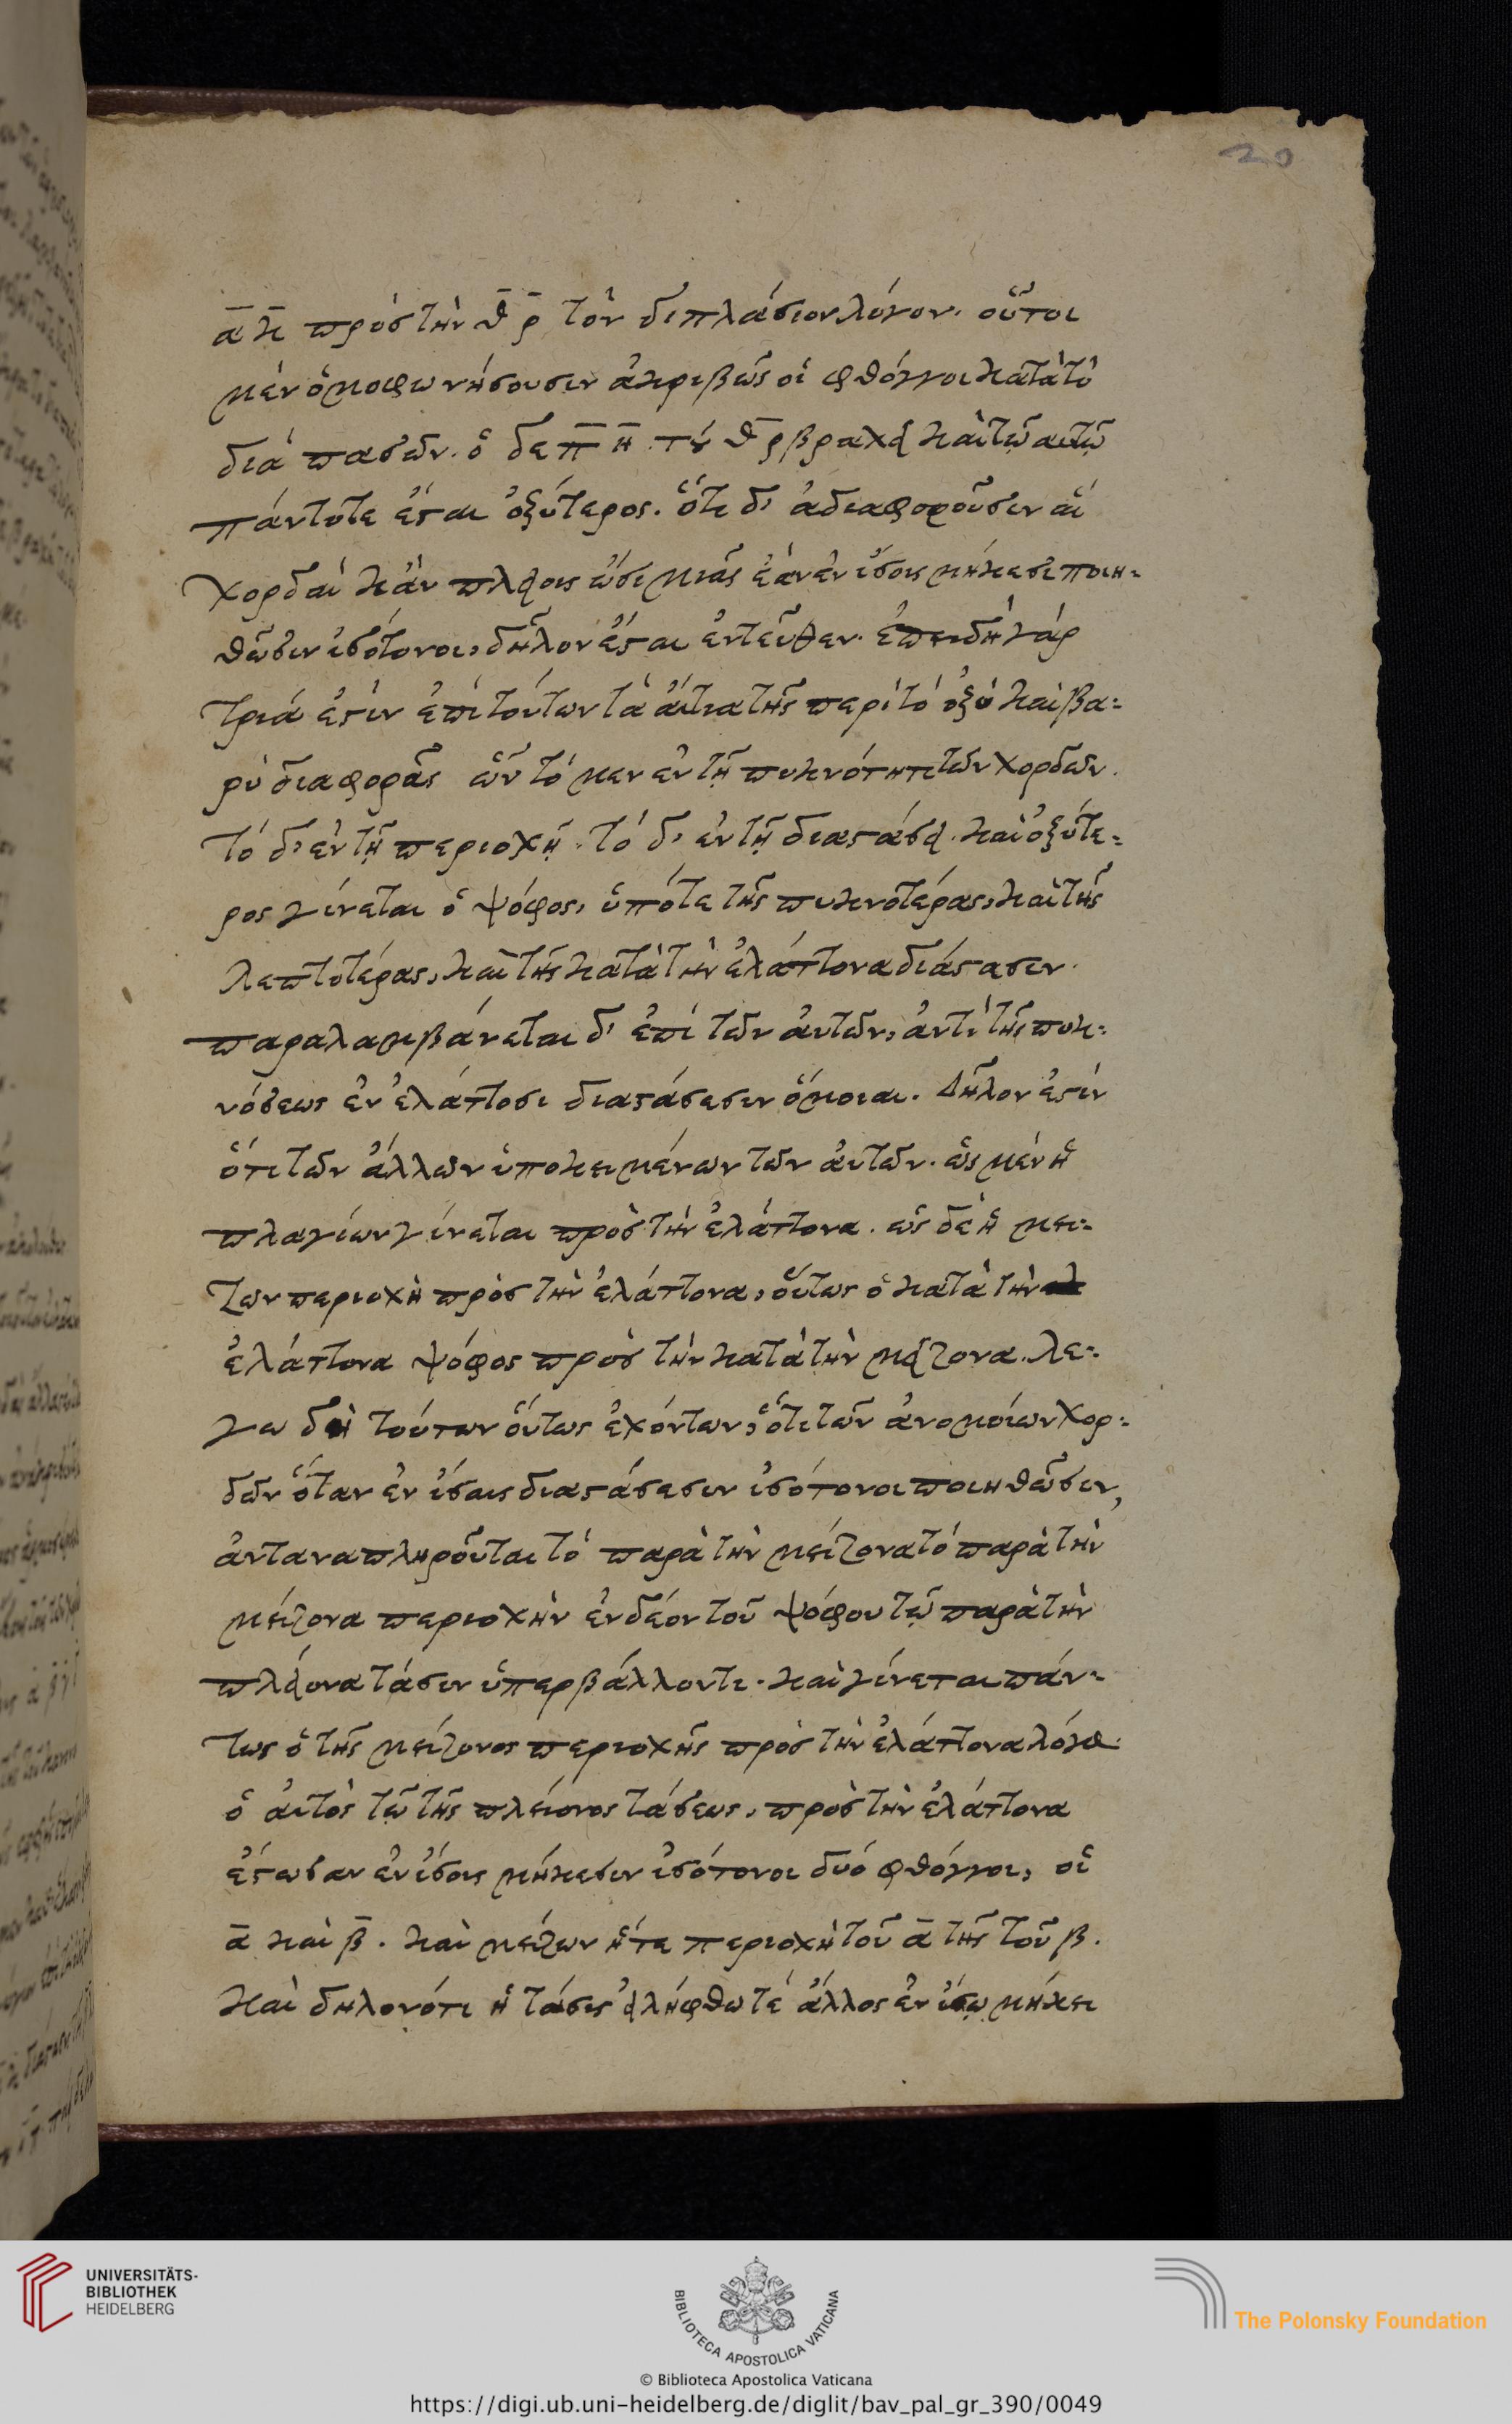 20
α̅κ̅ πρὸς τὴν θ̅ρ̅ τὸν διπλάσιον λόγον. οὗτοι
μὲν ὁμοφωνήσουσιν ἀκριβῶς οἱ φθόγγοι κατὰ τὸ
διὰ πασῶν. ὁ δε π̅η̅ τοῦ θ̅ρ βραχεῖ καὶ τῷ αυτῷ
πάντοτε ἔσται ὀξύτερος. ὅτι δ' ἀδιαφοροῦσιν αἱ
χορδαὶ κἂν πλείοις ὦσι μιᾶς ἐὰν ἐν ἴσοις μήκεσι ποιη-
θῶσιν ἰσότονοι, δῆλον ἔσται ἐντεῦθεν. ἐπειδὴ γάρ
τριά ἐστιν ἐπὶ τούτων τὰ ἄιτια τῆς περὶ τὸ ὀξὺ καὶ βα-
ρὺ διαφορᾶς ὧν τὸ μεν ἐν τῇ πυκνότητι τῶν χορδῶν.
τὸ δ' ἐν τῇ περιοχῇ. τὸ δ' ἐν τῇ διαστάσει. καὶ ὀξύτε-
ρος γίνεται ὁ ψόφος, ὑπότε τῆς πυκνοτέρας, καὶ τῆς
λεπτοτέρας, καὶ τῆς κατὰ τὴν ἐλάττονα διάστασιν.
παραλαμβάνεται δ' ἐπὶ τῶν ἀυτῶν, ἀντὶ τῆς πυκ-
νόσεως ἐν ἐλάττοσι διαστάσεσιν ὅμοιαι. Δῆλον ἐστίν
ὅτι τῶν ἄλλων ὑποκειμένων τῶν ἀυτῶν. ὡς μέν ἡ
πλαγίων γίνεται πρὸς τὴν ἐλάττονα. ὡς δὲ ἡ μεί-
ζων περιοχὴ πρὸς τὴν ἐλάττονα, οὕτως ὁ κατὰ τὴν
ἐλάττονα ψόφος πρὸς τὴν κατὰ τὴν μείζονα. λέ-
γω δὴ τούτων ὅυτως ἐχόντων, ὅτι τῶν ἀνομοίων χορ-
δῶν ὅταν ἐν ἴσαις διαστάσεσιν ἰσότονοι ποιηθῶσιν,
ἀνταναπληροῦται τὸ παρὰ τὴν μείζονα τὸ παρὰ τὴν
μείζονα περιοχὴν ἐνδέον τοῦ ψόφου τῷ παρὰ τὴν
πλείονα τάσιν ὑπερβάλλοντι. καὶ γίνεται πάν-
τως ὁ τῆς μείζονος περιοχῆς πρὸς τὴν ἐλάττονα λόγος
ὁ ἀυτὸς τῷ τῆς πλείονος τάσεως, πρὸς τὴν ἐλάττονα
ἔστωσαν ἐν ἴσοις μήκεσιν ἰσότονοι δυό φθόγγοι, οἱ
α̅ καὶ β̅. καὶ μείζων ἥτε περιοχὴ τοῦ α̅ τῆς τοῦ β.
καὶ δηλονότι ἡ τάσις εἰλήφθω τέ ἄλλος ἐν ἴσῳ μήκει
UNIVERSITÄTS-
BIBLIOTHEK
HEIDELBERG
BIBLIOTECA APOSTOLICA VATICANA
The Polonsky Foundation
© Biblioteca Apostolica Vaticana
https://digi.ub.uni-heidelberg.de/diglit/bav_pal_gr_390/0049